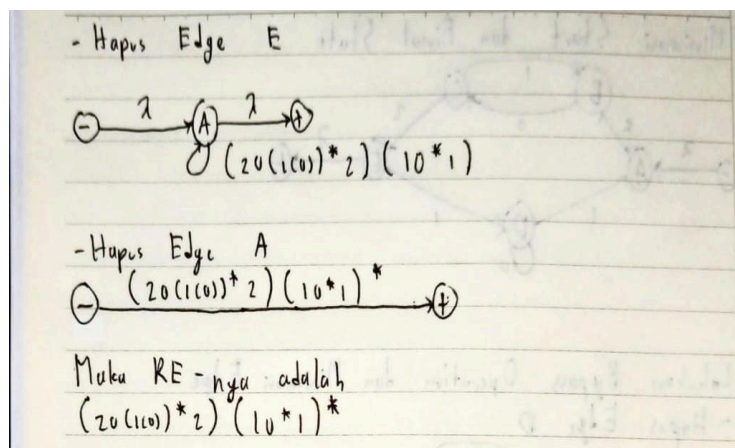 - Hapus Edge E
- λ A λ +
(20(10))*2)(10*1)
- Hapus Edge A
(20(10))*2)(10*1)*
- +
Maka RE-nya adalah
(20(10))*2)(10*1)*